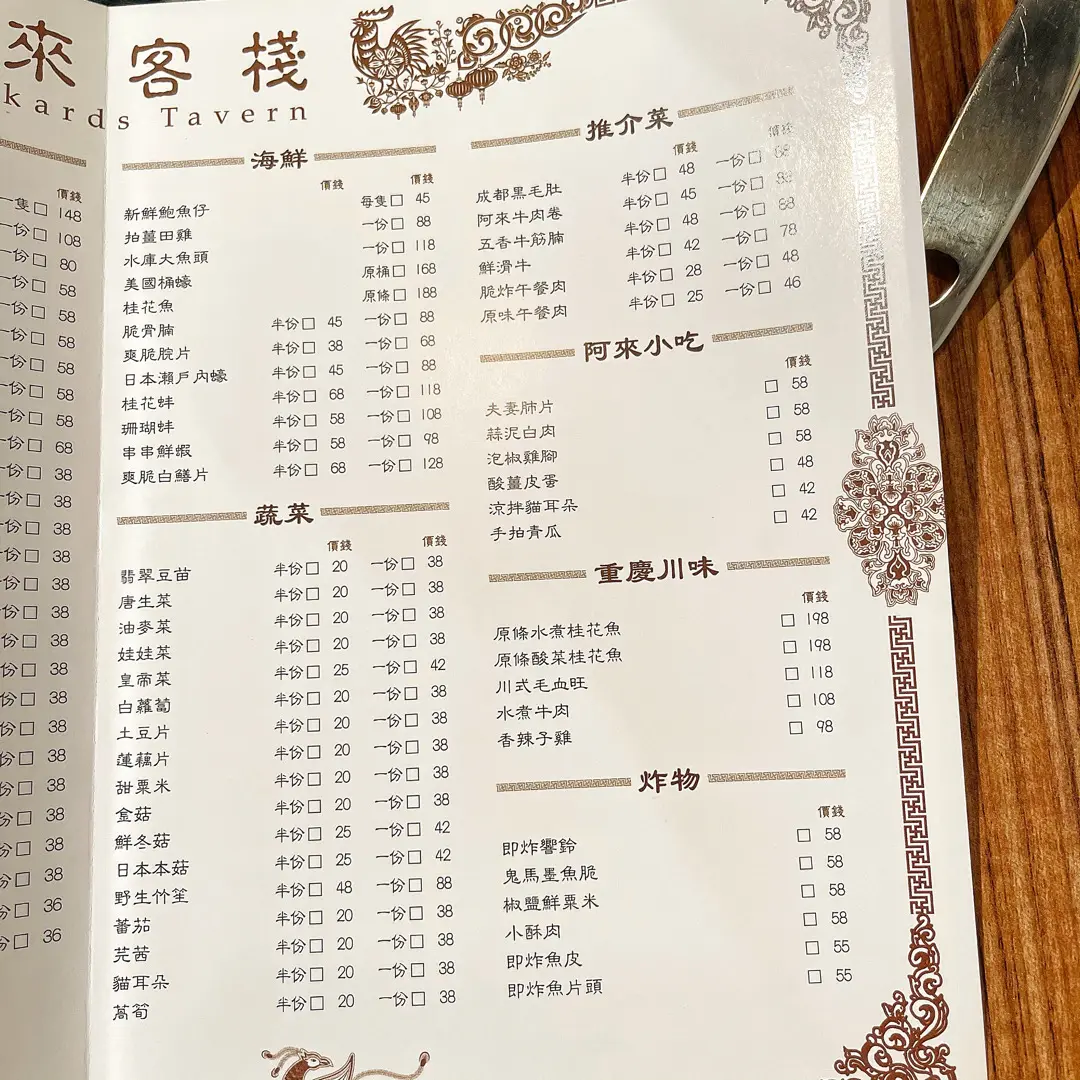 來客棧
kards Tavern
價錢
一隻□ 148
一份□ 108
一份□ 80
一份□ 58
一份□ 58
一份□ 58
一份□ 58
一份□ 58
一份□ 58
一份□ 68
一份□ 38
一份□ 38
一份□ 38
一份□ 38
份□ 38
份□ 38
份□ 38
份□ 38
份□ 38
份□ 38
份□ 38
份□ 38
份□ 38
份□ 38
份□ 38
份□ 36
份□ 36
海鮮
價錢 價錢
新鮮鮑魚仔 每隻□ 45
拍薑田雞 一份□ 88
水庫大魚頭 一份□ 118
美國桶蠔 原桶□ 168
桂花魚 原條□ 188
脆骨腩 半份□ 45 一份□ 88
爽脆脘片 半份□ 38 一份□ 68
日本瀨戶內蠔 半份□ 45 一份□ 88
桂花蚌 半份□ 68 一份□ 118
珊瑚蚌 半份□ 58 一份□ 108
串串鮮蝦 半份□ 58 一份□ 98
爽脆白鱔片 半份□ 68 一份□ 128
蔬菜
價錢 價錢
翡翠豆苗 半份□ 20 一份□ 38
唐生菜 半份□ 20 一份□ 38
油麥菜 半份□ 20 一份□ 38
娃娃菜 半份□ 20 一份□ 38
皇帝菜 半份□ 25 一份□ 42
白蘿蔔 半份□ 20 一份□ 38
土豆片 半份□ 20 一份□ 38
蓮藕片 半份□ 20 一份□ 38
甜粟米 半份□ 20 一份□ 38
金菇 半份□ 20 一份□ 38
鮮冬菇 半份□ 25 一份□ 42
日本本菇 半份□ 25 一份□ 42
野生竹笙 半份□ 48 一份□ 88
蕃茄 半份□ 20 一份□ 38
芫茜 半份□ 20 一份□ 38
貓耳朵 半份□ 20 一份□ 38
蒿筍 半份□ 20 一份□ 38
推介菜
價錢 價錢
成都黑毛肚 半份□ 48 一份□
阿來牛肉卷 半份□ 45 一份□ 88
五香牛筋腩 半份□ 48 一份□ 88
鮮滑牛 半份□ 42 一份□ 78
脆炸午餐肉 半份□ 28 一份□ 48
原味午餐肉 半份□ 25 一份□ 46
阿來小吃
價錢
夫妻肺片 □ 58
蒜泥白肉 □ 58
泡椒雞腳 □ 58
酸薑皮蛋 □ 48
涼拌貓耳朵 □ 42
手拍青瓜 □ 42
重慶川味
價錢
原條水煮桂花魚 □ 198
原條酸菜桂花魚 □ 198
川式毛血旺 □ 118
水煮牛肉 □ 108
香辣子雞 □ 98
炸物
價錢
即炸響鈴 □ 58
鬼馬墨魚脆 □ 58
椒鹽鮮粟米 □ 58
小酥肉 □ 58
即炸魚皮 □ 55
即炸魚片頭 □ 55